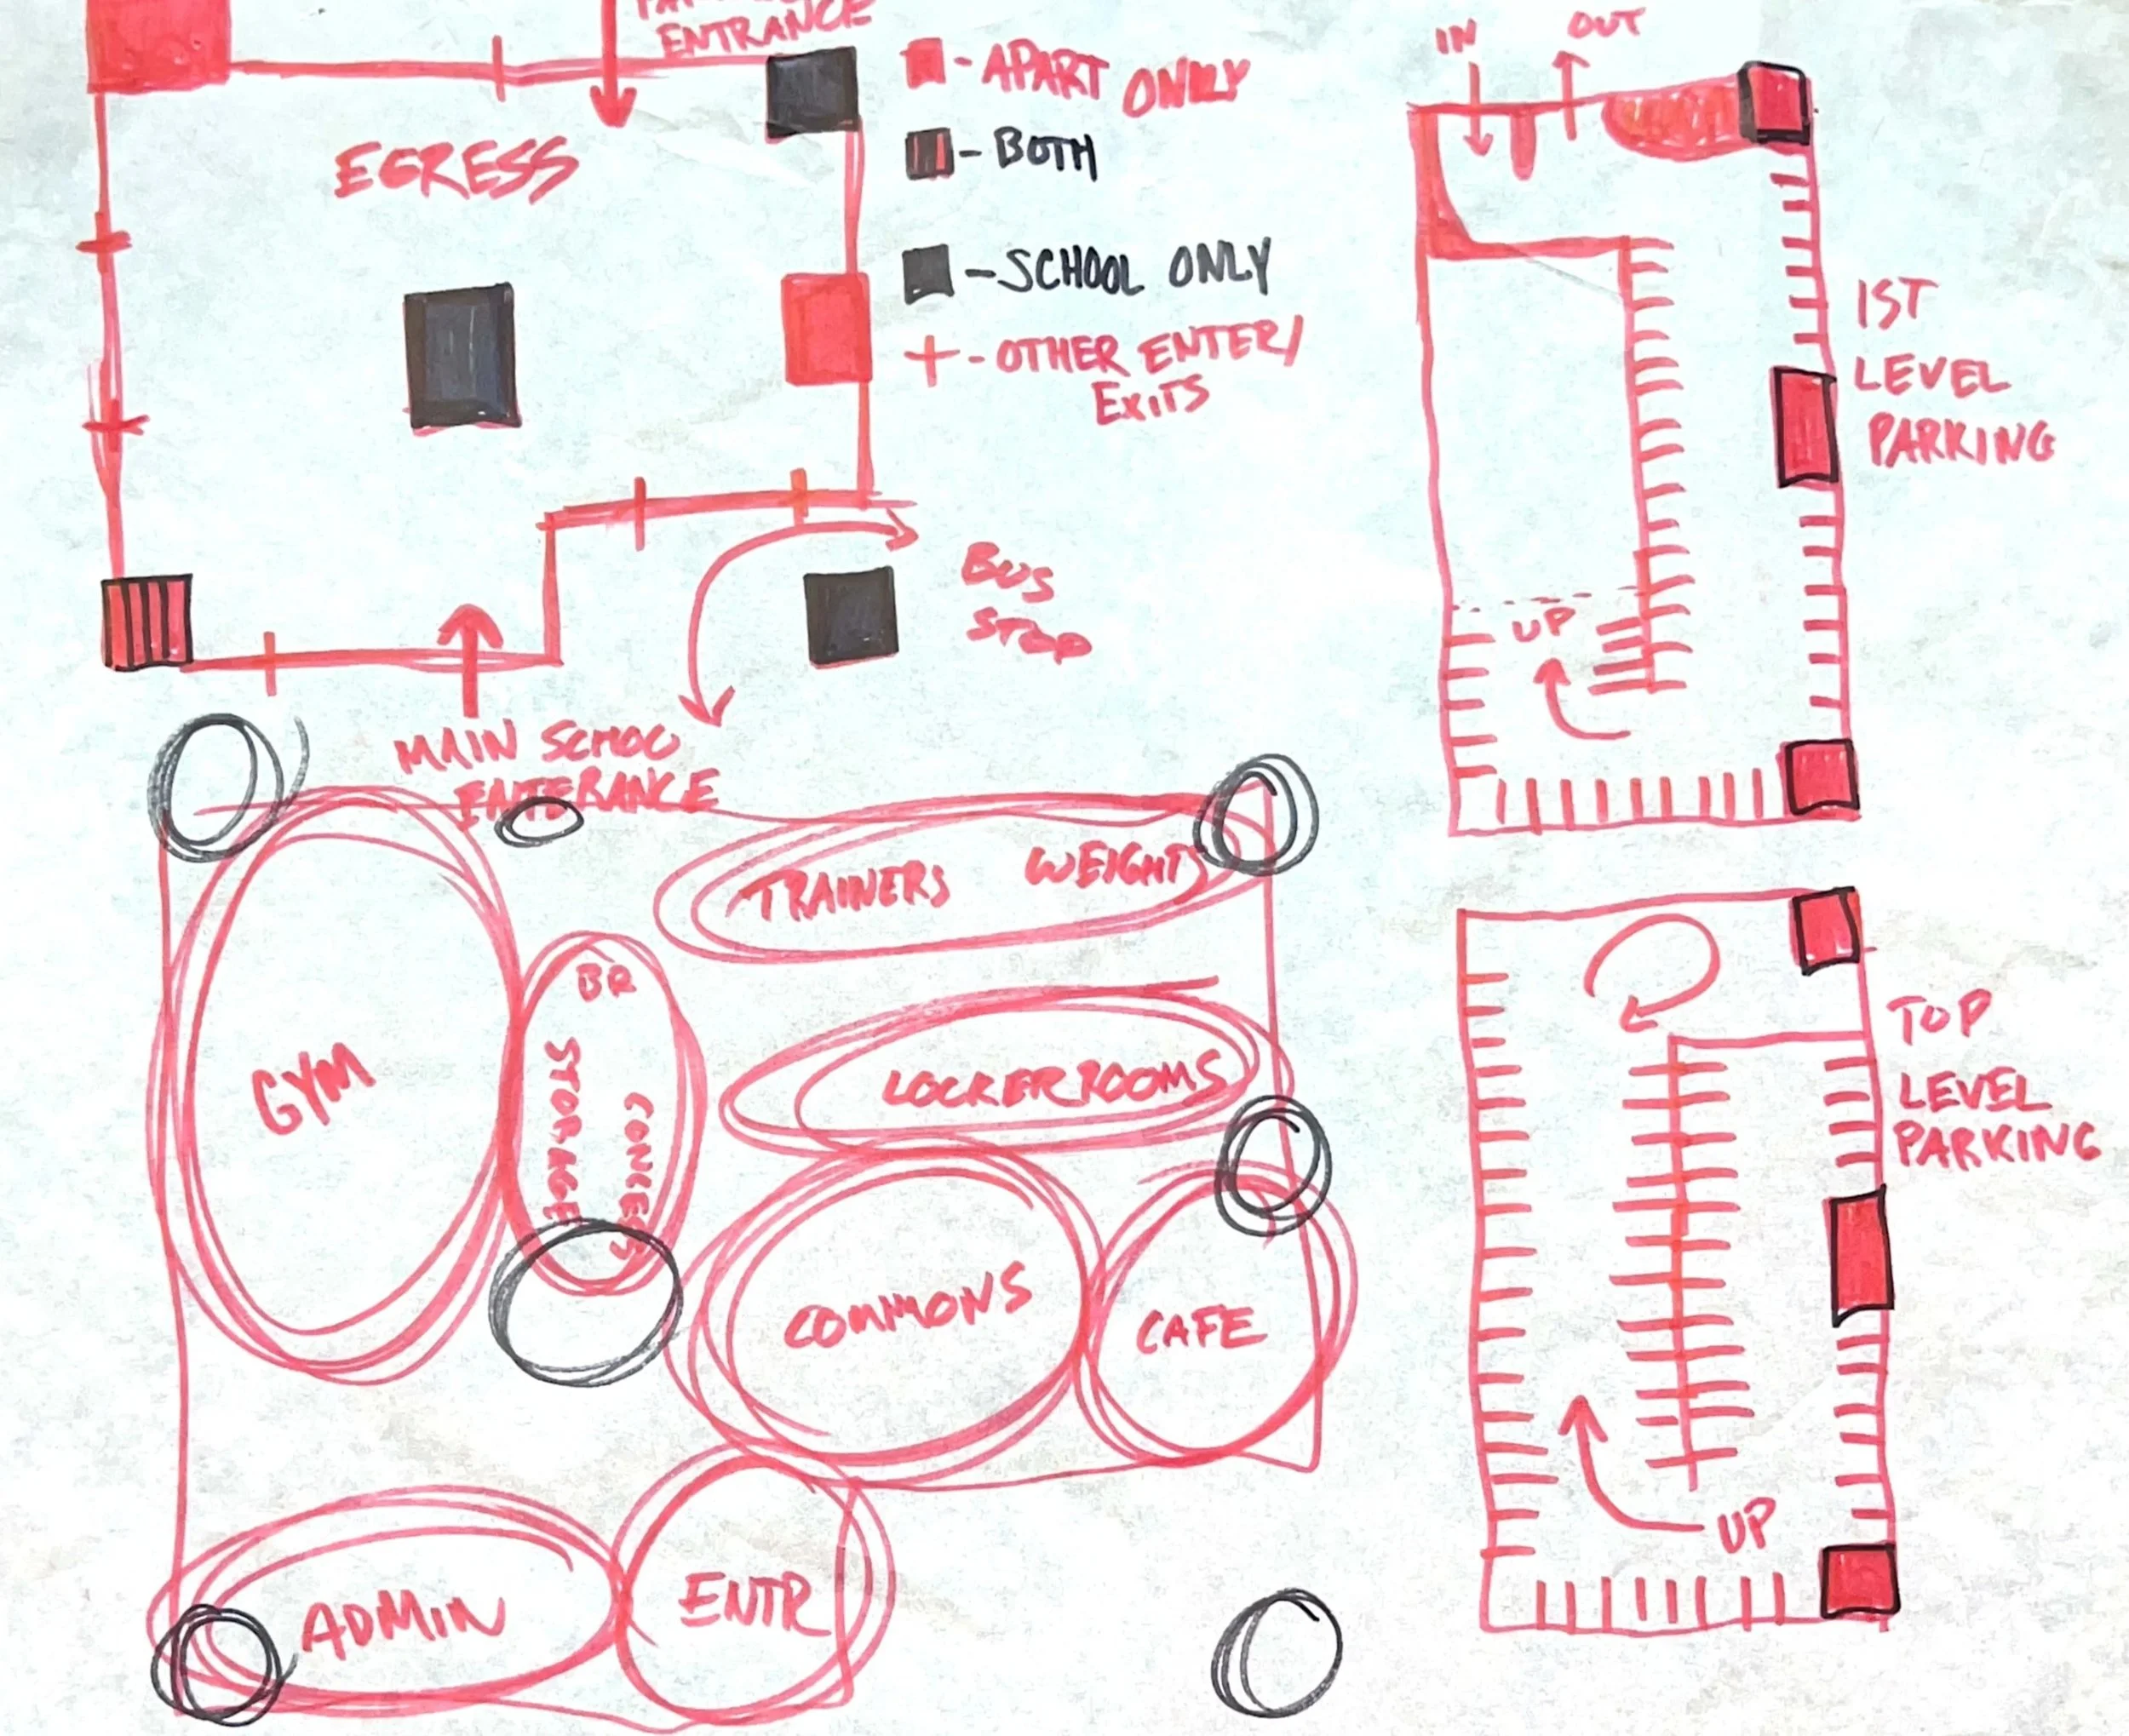 ENTRANCE
EGRESS
- APART ONLY
- BOTH
- SCHOOL ONLY
+ - OTHER ENTER/
EXITS
BUS
STOP
MAIN SCHOO
ENTERANCE
IN
OUT
1ST
LEVEL
PARKING
UP
TRAINERS WEIGHTS
GYM
BR
STORAGE
CONCESS
LOCKERROOMS
COMMONS
CAFE
ADMIN
ENTR
TOP
LEVEL
PARKING
UP